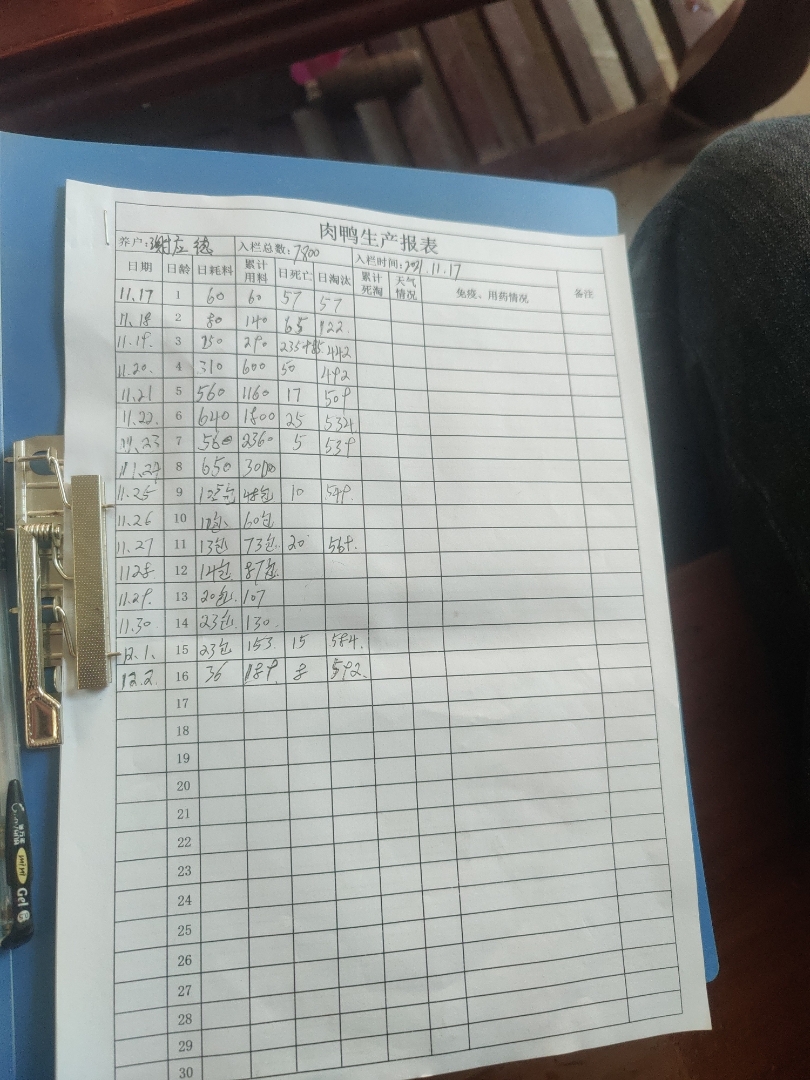 肉鸭生产报表
养户:谢应德 入栏总数:7800 入栏时间:2021.11.17
日期 日龄 日耗料 累计用料 日死亡 日淘汰 累计死淘 天气情况 免疫、用药情况 备注
11.17 1 60 60 57 57
11.18 2 80 140 65 122
11.19. 3 150 290 235+85 442
11.20. 4 310 600 50 492
11.21 5 560 1160 17 509
11.22. 6 640 1800 25 534
11.23 7 560 2360 5 539
11.24 8 650 3010
11.25 9 12包 48包 10 549.
11.26 10 12包 60包
11.27 11 13包 73包 20 569.
1128. 12 14包 87包
11.29. 13 20包 107
11.30. 14 23包 130.
12.1. 15 23包 153. 15 584.
12.2. 16 36 189. 8 592.
17
18
19
20
21
22
23
24
25
26
27
28
29
30
Gel